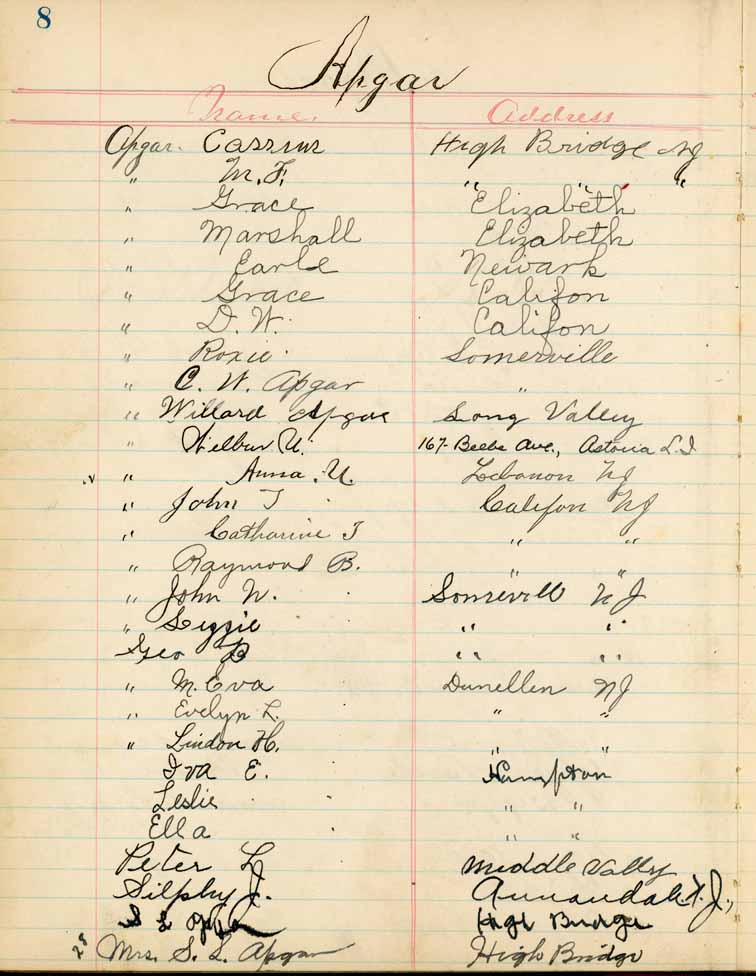 8
Apgar
Name. Address
Apgar. Cassius High Bridge NJ
" M. F. " " "
" Grace Elizabeth
" Marshall Elizabeth
" Earle Newark
" Grace Califon
" D. W. Califon
" Roxie Somerville
" C. W. Apgar "
" Willard Apgar Long Valley
" Wilbur U. 167- Beebe Ave., Astoria L.I
" Anna. U. Lebanon NJ
" John T Califon NJ
" Catharine T " "
" Raymond B. " "
" John W. Somervill NJ
" Lizzie " "
Geo B " "
" M. Eva Dunellen NJ
" Evelyn L. " "
" Lindon H. " "
Iva E. Hampton
Leslie " "
Ella " "
Peter L Middle Valley
Silphy J. Annandale N.J.,
S L Apgar High Bridge
28 Mrs. S. L. Apgar High Bridge